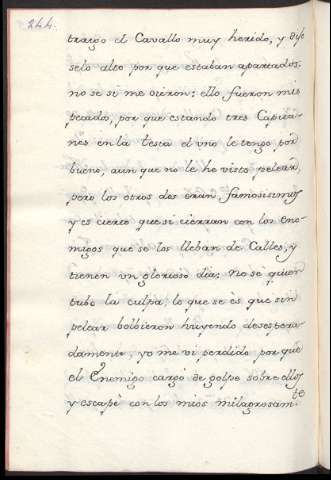 244.
traygo el Cavallo muy herido, y dije
selo alto por que estaban apartados.
no se si me oieron: ello fueron mis
pecados, por que estando tres Capita-
nes en la testa el uno le tengo por
bueno, aun que no le he visto pelear,
pero los otros dos eran famosisimos
y es cierto que si cierran con los ene-
migos que se los lleban de Calles, y
tienen un glorioso dia: No se quien
tubo la culpa, lo que se ès que sin
pelear bolbieron huyendo desespera-
damente, yo me vi perdido por que
el Enemigo cargò de golpe sobre ellos
y escapè con los mios milagrosamte